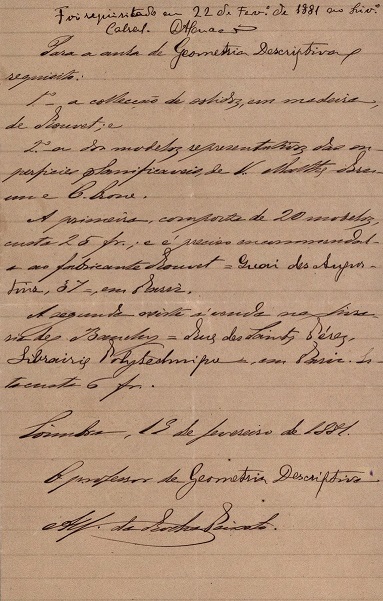 Foi requisitado em 22 de Fev.º de 1881 ao
Cabral.
Para a aula de Geometria Descriptiva
requisito:
1.º a collecção de solidos, em madeira,
de e
2.º a dos modelos representativos das su-
perficies planificaveis, de
e C.
A primeira, composta de 20 modelos,
custa 25 fr.; e é preciso encommendal-
a ao fabricante = Quai des Augus-
tins, 57 =, em Paris.
A segunda existe á venda na livra-
ria de = Rue des Saints Pères,
Librairie Polytechnique =, em Paris. Es-
ta custa 6 fr.
Coimbra, 13 de fevereiro de 1881.
O professor de Geometria Descriptiva
da Rocha Peixoto